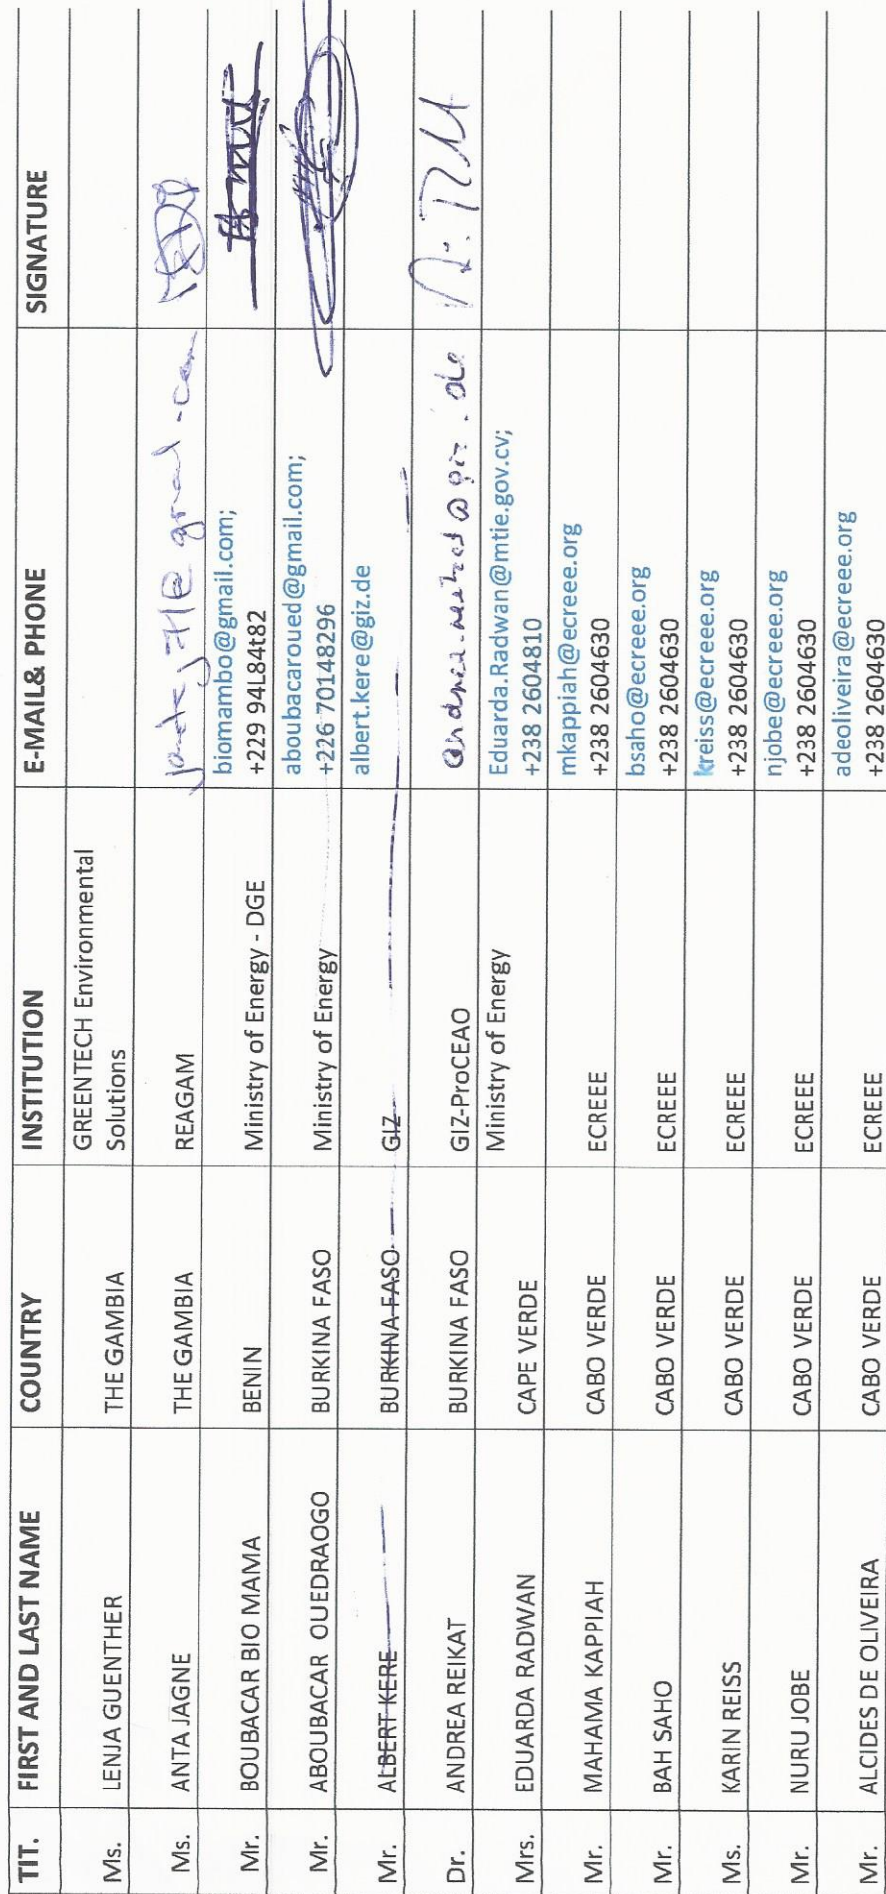 TIT. FIRST AND LAST NAME COUNTRY INSTITUTION E-MAIL& PHONE SIGNATURE
Ms. LENJA GUENTHER THE GAMBIA GREENTECH Environmental
Solutions
Ms. ANTA JAGNE THE GAMBIA REAGAM
Mr. BOUBACAR BIO MAMA BENIN Ministry of Energy - DGE biomambo@gmail.com;
+229 94L84t82
Mr. ABOUBACAR OUEDRAOGO BURKINA FASO Ministry of Energy aboubacaroued@gmail.com;
+226 70148296
Mr. ALBERT KERE BURKINA FASO GIZ albert.kere@giz.de
Dr. ANDREA REIKAT BURKINA FASO GIZ-ProCEAO
Mrs. EDUARDA RADWAN CAPE VERDE Ministry of Energy Eduarda.Radwan@mtie.gov.cv;
+238 2604810
Mr. MAHAMA KAPPIAH CABO VERDE ECREEE mkappiah@ecreee.org
+238 2604630
Mr. BAH SAHO CABO VERDE ECREEE bsaho@ecreee.org
+238 2604630
Ms. KARIN REISS CABO VERDE ECREEE kreiss@ecreee.org
+238 2604630
Mr. NURU JOBE CABO VERDE ECREEE njobe@ecreee.org
+238 2604630
Mr. ALCIDES DE OLIVEIRA CABO VERDE ECREEE adeoliveira@ecreee.org
+238 2604630